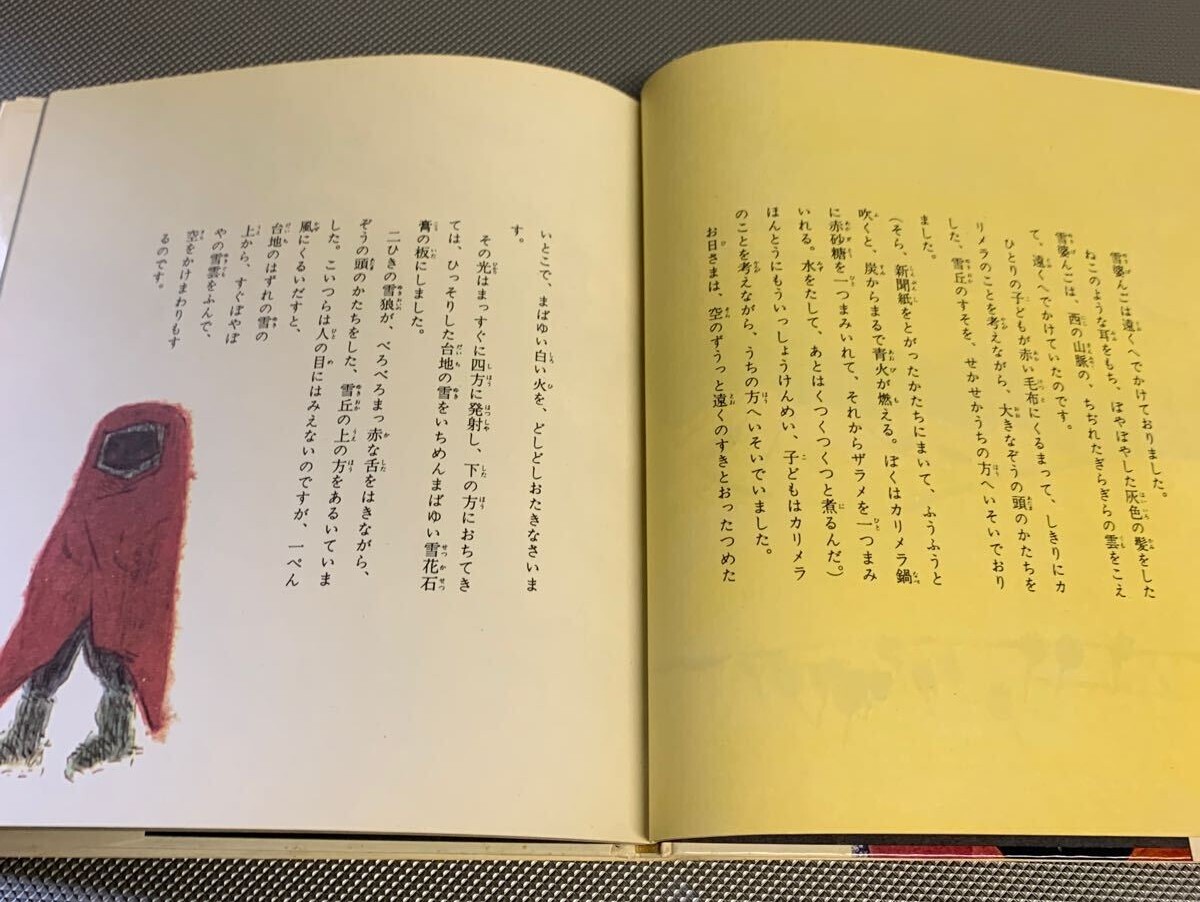 雪婆んごは遠くへでかけておりました。
ねこのような耳をもち、ぼやぼやした灰色の髪をした
雪婆んごは、西の山脈の、ちぢれたぎらぎらの雲をこえ
て、遠くへでかけていたのです。
ひとりの子どもが赤い毛布にくるまって、しきりにカ
リメラのことを考えながら、大きなぞうの頭のかたちを
した、雪丘のすそを、せかせかうちの方へいそいでおり
ました。
(そら、新聞紙をとがったかたちにまいて、ふうふうと
吹くと、炭からまるで青火が燃える。ぼくはカリメラ鍋
に赤砂糖を一つまみいれて、それからザラメを一つまみ
いれる。水をたして、あとはくつくつくつと煮るんだ。)
ほんとうにもういっしょうけんめい、子どもはカリメラ
のことを考えながら、うちの方へいそいでいました。
お日さまは、空のずうっと遠くのすきとおったつめた
いとこで、まばゆい白い火を、どしどしおたきなさいま
す。
その光はまっすぐに四方に発射し、下の方におちてき
ては、ひっそりした台地の雪をいちめんまばゆい雪花石
膏の板にしました。
二ひきの雪狼が、べろべろまっ赤な舌をはきながら、
ぞうの頭のかたちをした、雪丘の上の方をあるいていま
した。こいつらは人の目にはみえないのですが、一ぺん
風にくるいだすと、
台地のはずれの雪の
上から、すぐぼやぼ
やの雪雲をふんで、
空をかけまわりもす
るのです。